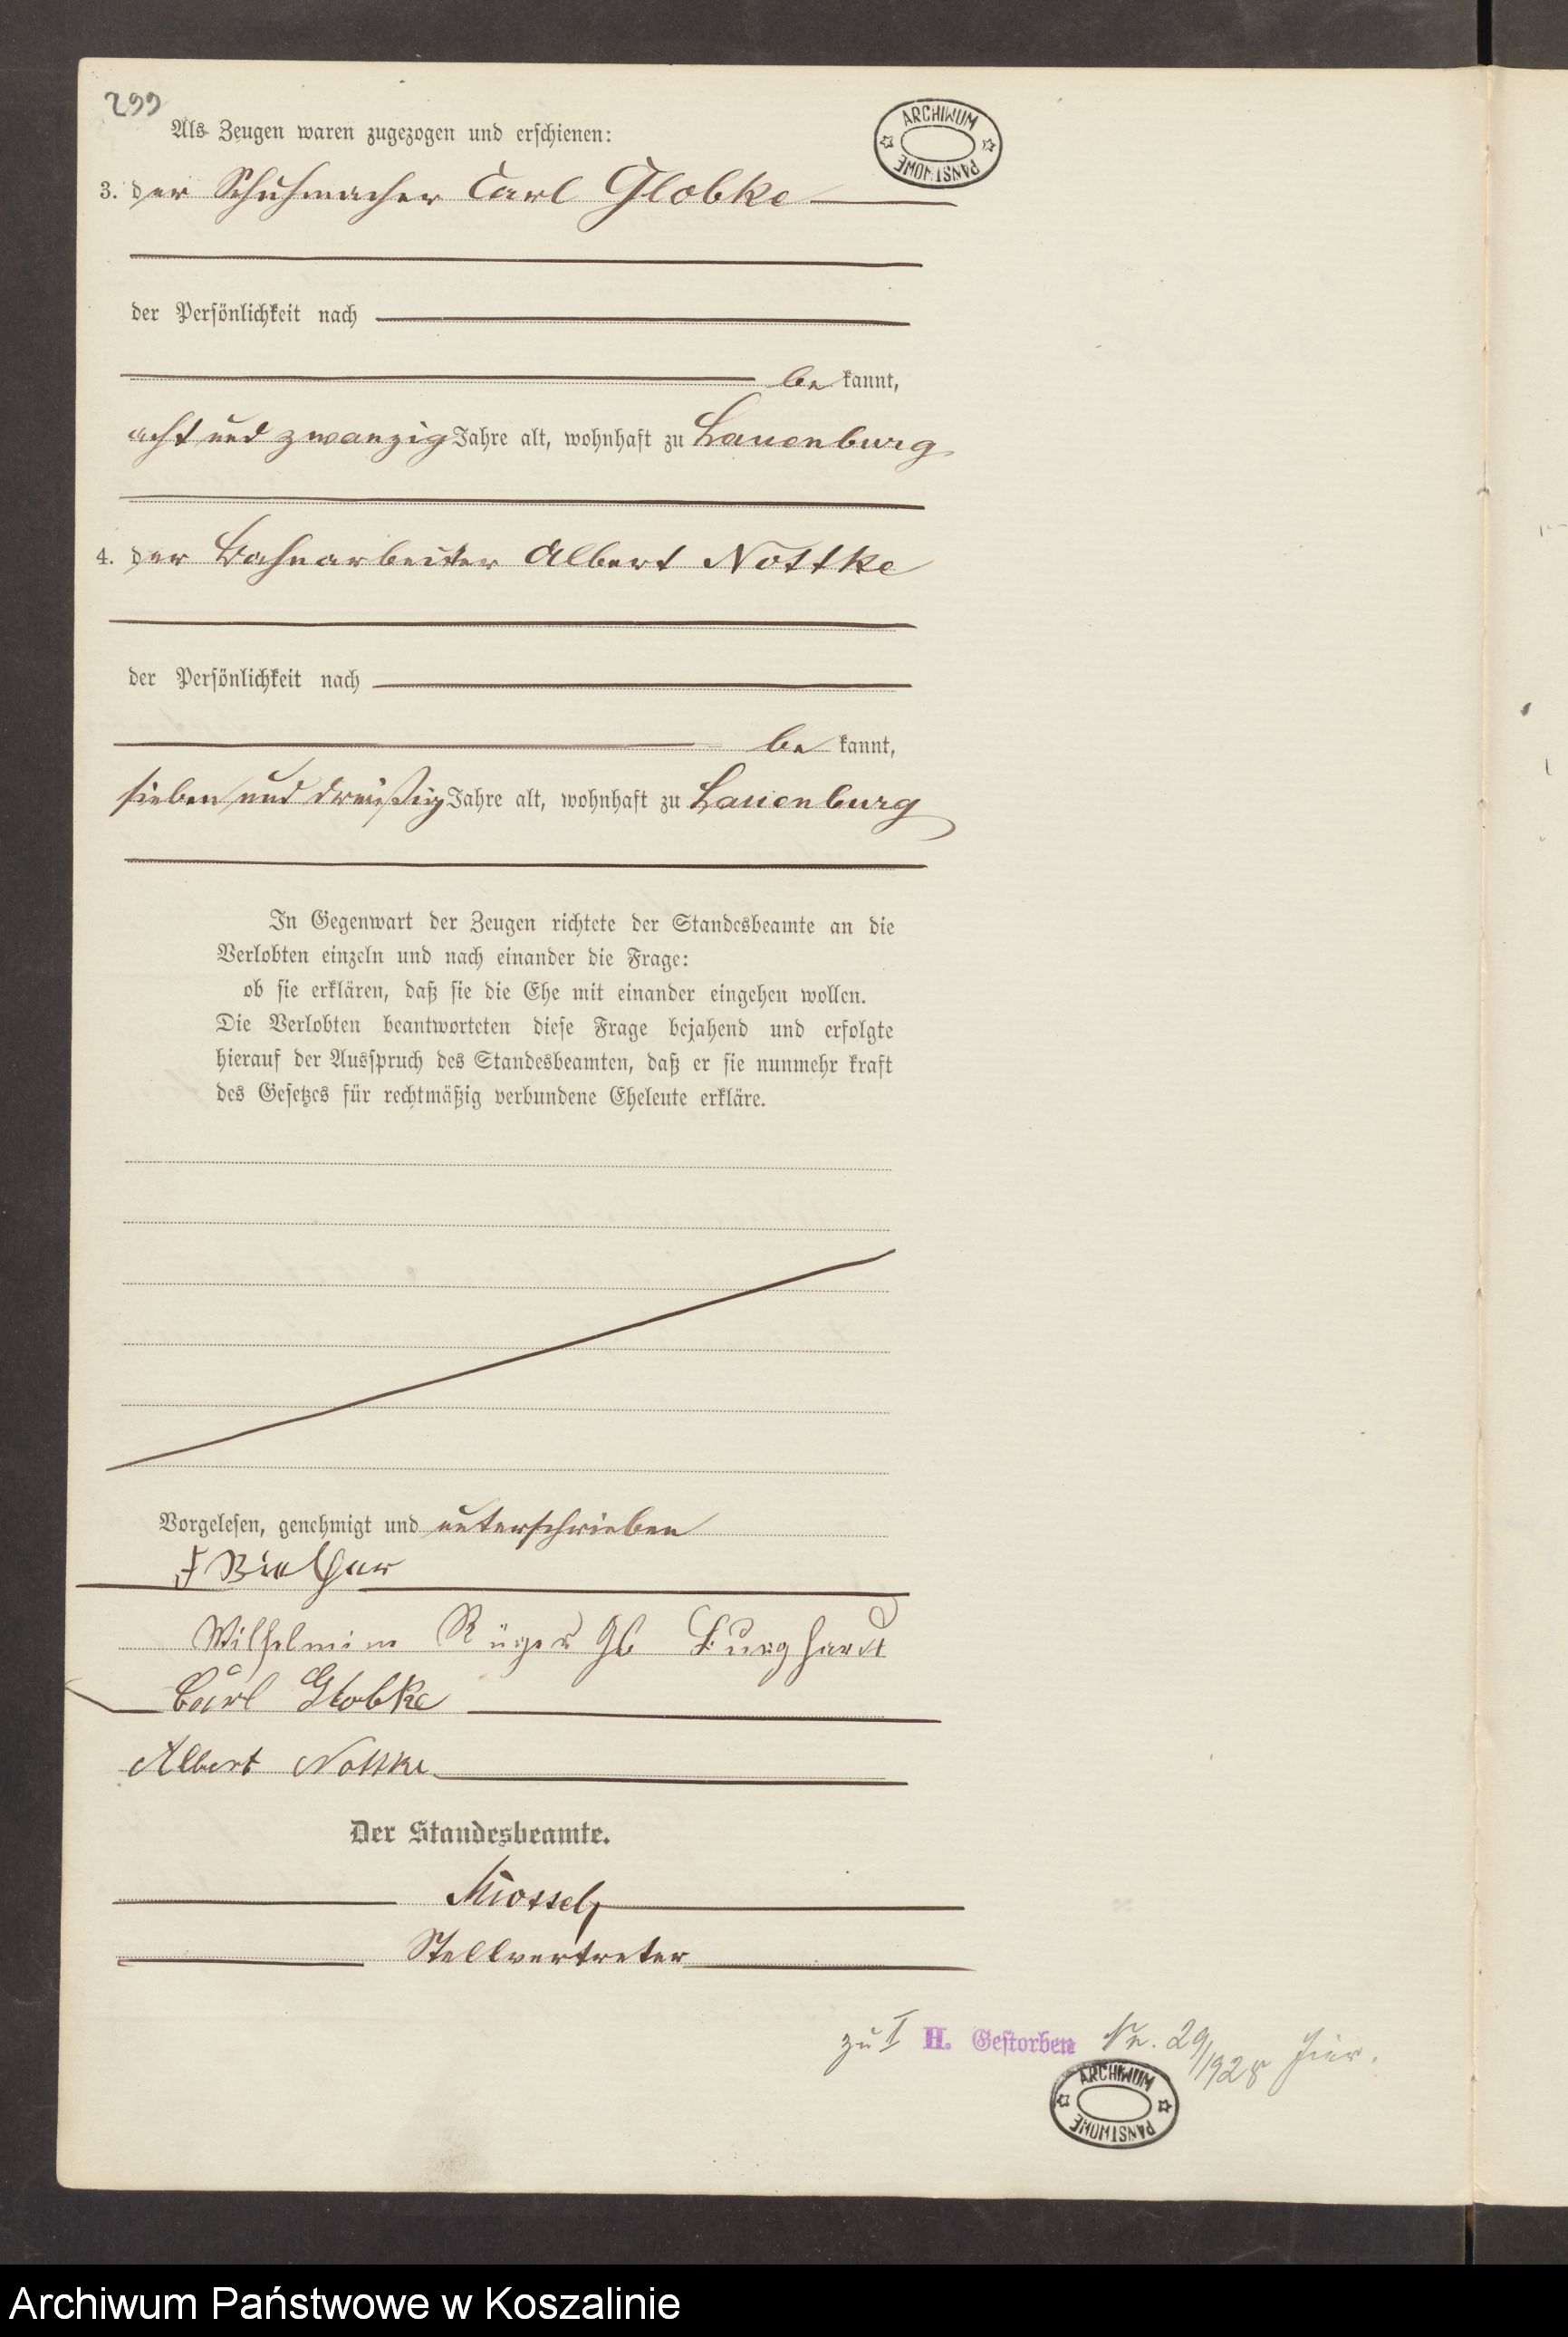 299
Als Zeugen waren zugezogen und erschienen:
ARCHIWUM PAŃSTWOWE
3. der Schuhmacher Carl Globke
der Persönlichkeit nach
be kannt,
acht und zwanzig Jahre alt, wohnhaft zu Lauenburg
4. der Bahnarbeiter Albert Nottke
der Persönlichkeit nach
be kannt,
sieben und dreißig Jahre alt, wohnhaft zu Lauenburg
In Gegenwart der Zeugen richtete der Standesbeamte an die
Verlobten einzeln und nach einander die Frage:
ob sie erklären, daß sie die Ehe mit einander eingehen wollen.
Die Verlobten beantworteten diese Frage bejahend und erfolgte
hierauf der Ausspruch des Standesbeamten, daß er sie nunmehr kraft
des Gesetzes für rechtmäßig verbundene Eheleute erkläre.
Vorgelesen, genehmigt und unterschrieben
Wilhelmine Rüger Gb Burghardt
Carl Globke
Albert Nottke
Der Standesbeamte.
Stellvertreter
zu I H. Gestorben Nr. 29/1928 hier.
ARCHIWUM PAŃSTWOWE
Archiwum Państwowe w Koszalinie